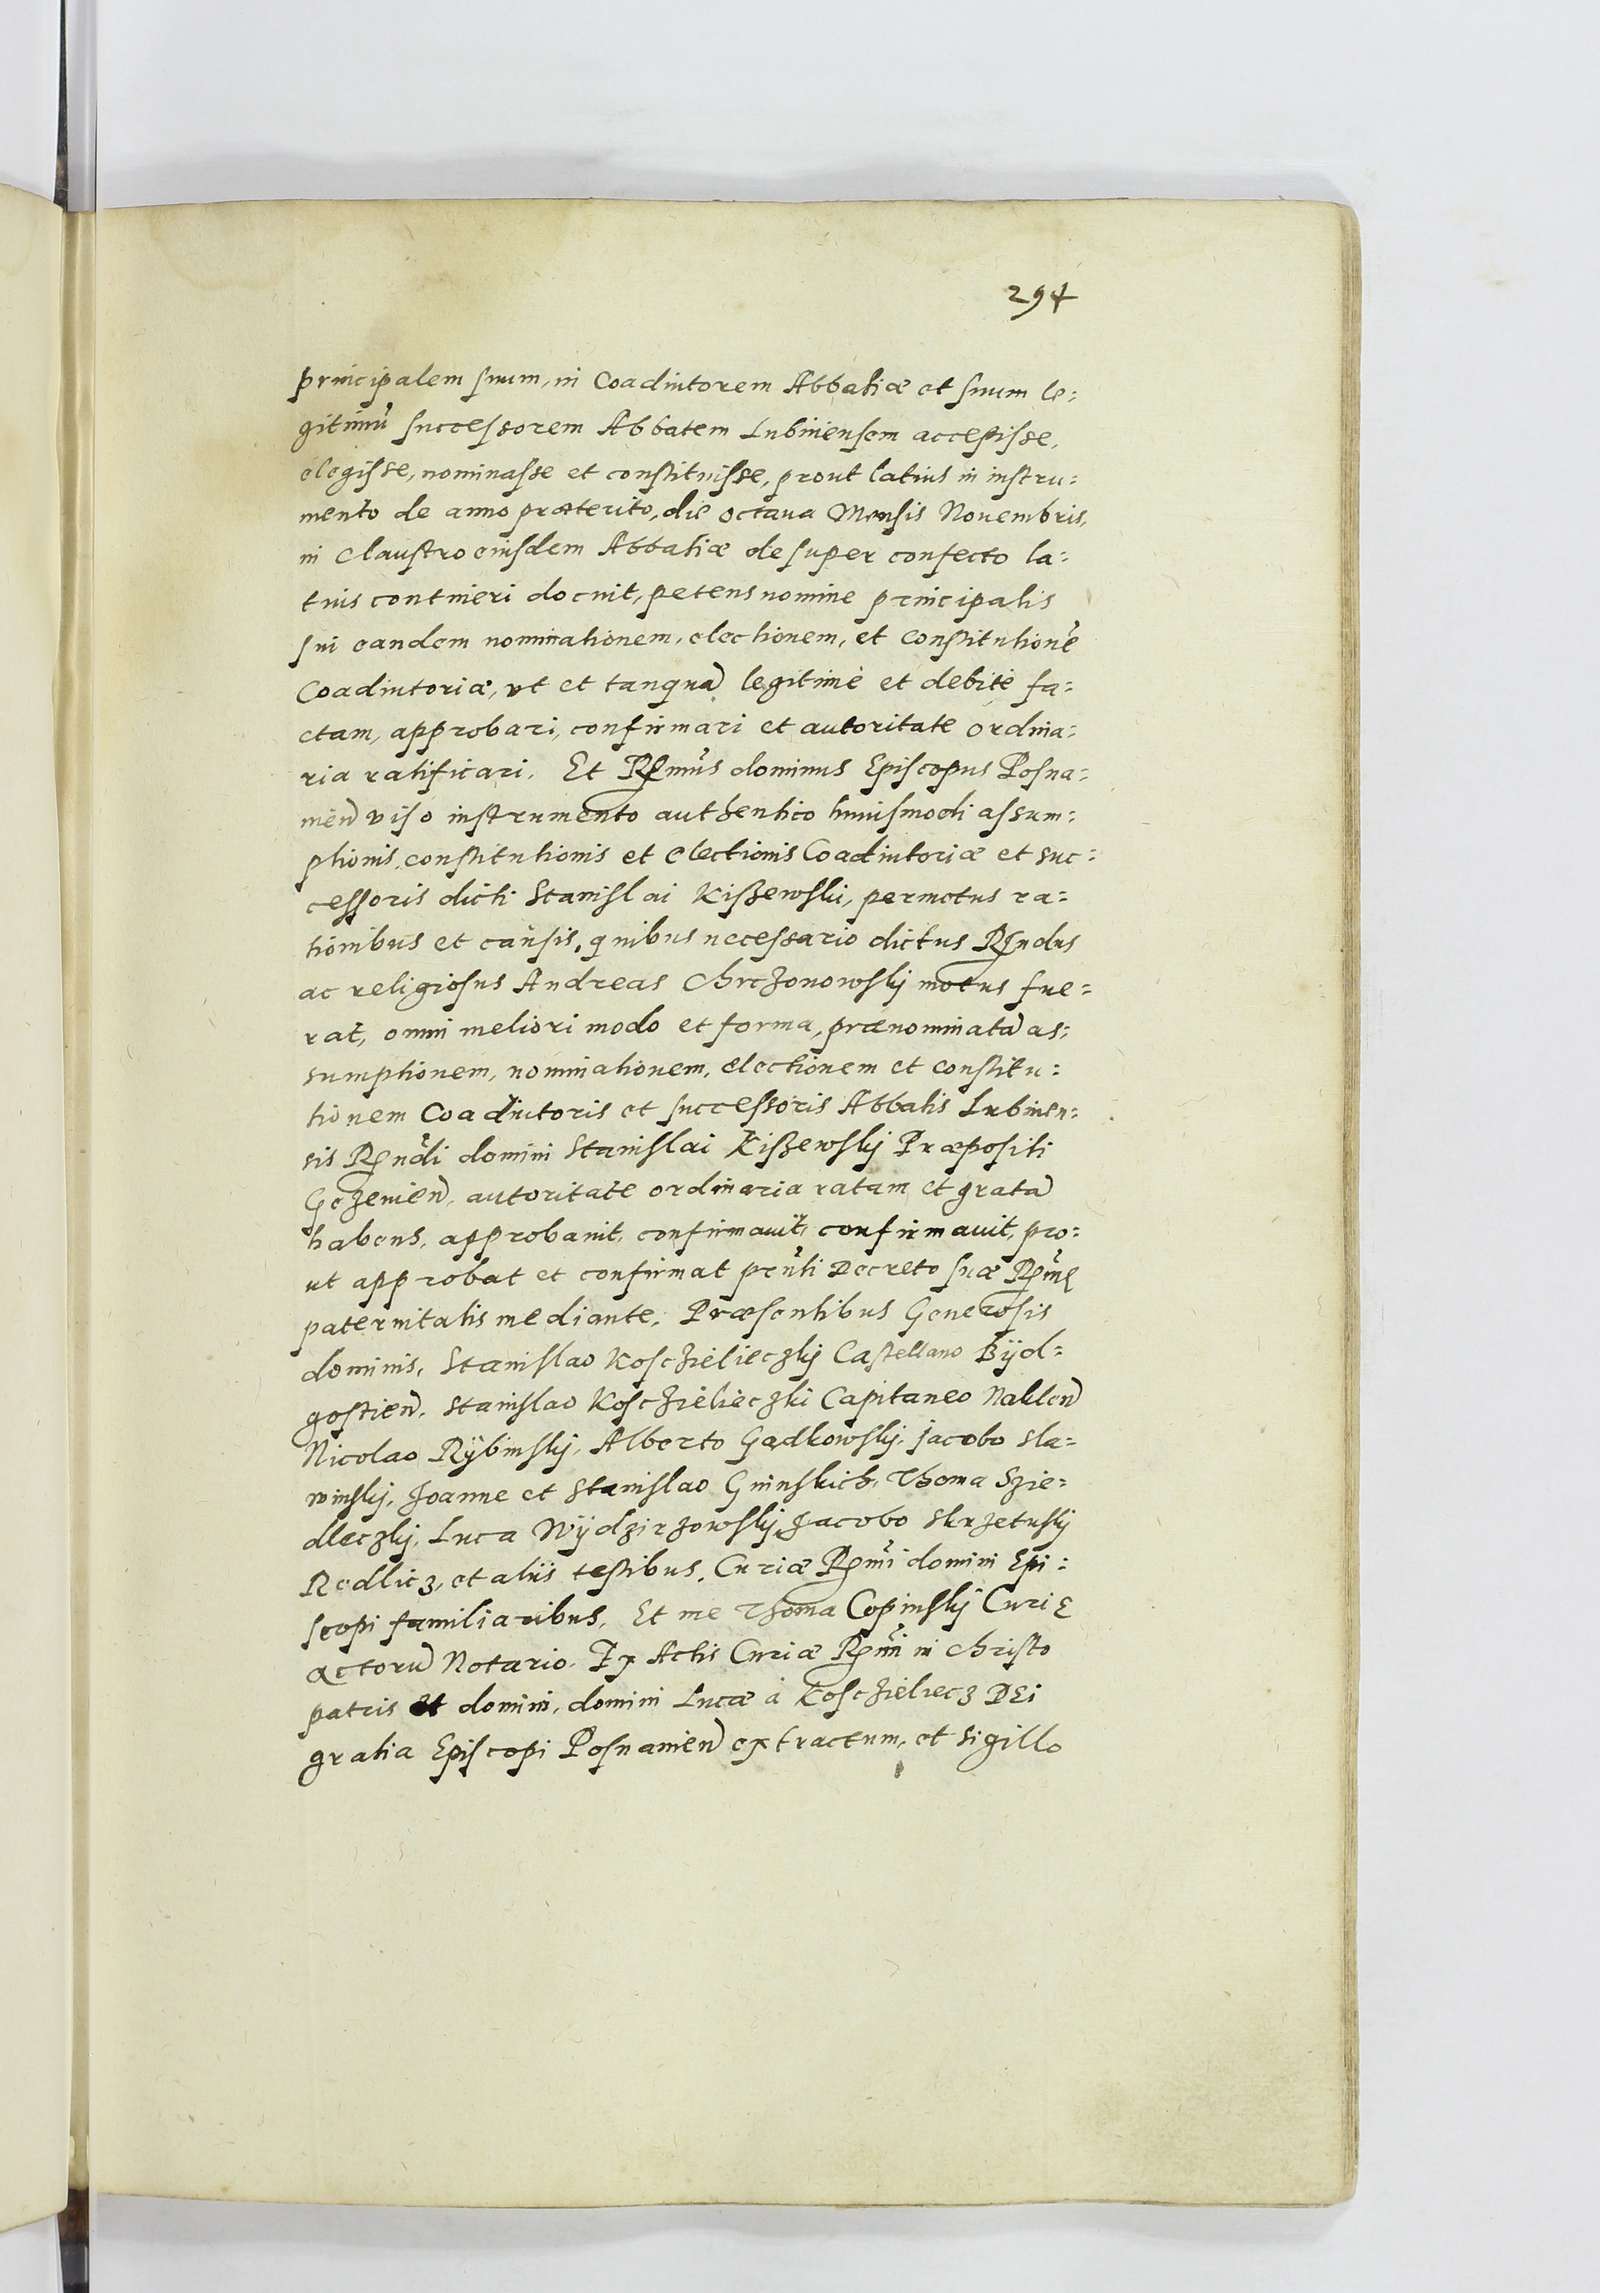 294
principalem suum, in Coadiutorem Abbatiæ et suum le=
gitimũ successorem Abbatem Lubinensem accepisse,
elegisse, nominasse et constituisse, prout latius in instru=
mento de anno præterito, die octaua Mensis Nouembris,
in Claustro eiusdem Abbatiæ desuper confecto la=
tius contineri docuit, petens nomine principalis
sui eandem nominationem, electionem, et constitutionẽ
Coadiutoriæ, vt et tanquã legitimè et debitè fa=
ctam, approbari, confirmari et autoritate ordina=
ria ratificari. Et Rẽmus dominus Episcopus Posna=
nień viso instrumento authentico huiusmodi assum=
ptionis, constitutionis et electionis Coadiutoriæ et suc=
cessoris dicti Stanislai Kißewski, permotus ra=
tionibus et causis, quibus necessario dictus Rñdus
ac religiosus Andreas Chrczonowskij motus fue=
rat, omni meliori modo et forma, prænominatã as=
sumptionem, nominationem, electionem et constitu=
tionem Coadiutoris et successoris Abbatis Lubinen=
sis Rñdi domini Stanislai Kißewskij Præpositi
Gczenień, autoritate ordinaria ratam et gratã
habens, approbauit, confirmauit, confirmauit, pro=
ut approbat et confirmat pñti Decreto suæ Rmę
paternitatis mediante. Præsentibus Generosis
dominis, Stanislao Kosczielieczkij Castellano Bÿd=
gostień. Stanislao Kosczielieczki Capitaneo Naklen
Nicolao Rÿbinskij, Alberto Gądkowskij, Jacobo Sla=
winskij, Joanne et Stanislao Gninskich, Thoma Szie=
dleczkij, Luca Wÿdzirzowskij, Jacobo Skrzetuskij
Redlicz, et aliis testibus, Curiæ Rmi domini Epi=
scopi familiaribus, Et me Thoma Copinskij Curię
actorũ Notario. Ex Actis Curiæ Rmi in Christo
patris et domini, domini Lucæ à Kosczieliecz DEi
gratia Episcopi Posnanień extractum, et sigillo